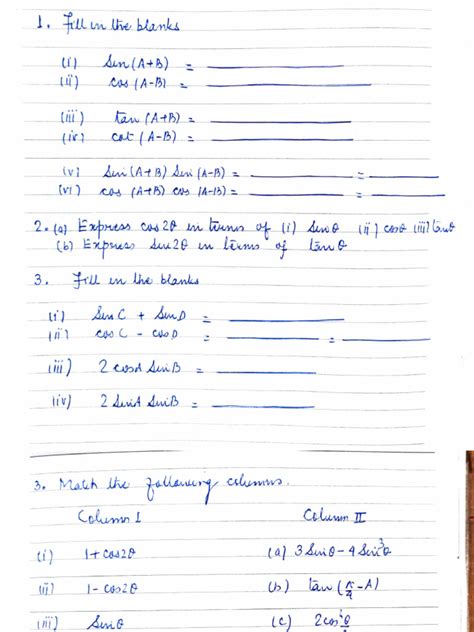 1. Fill in the blanks
(i) Sin (A+B) =
(ii) cos (A-B) =
(iii) tan (A+B) =
(iv) cot (A-B) =
(v) Sin (A+B) Sin (A-B) = =
(vi) cos (A+B) cos (A-B) = =
2. (a) Express cos2θ in terms of (i) Sinθ (ii) cosθ (iii) tanθ
(b) Express Sin2θ in terms of tanθ
3. Fill in the blanks
(i) SinC + SinD =
(ii) cosC - cosD = =
(iii) 2 cosA SinB =
(iv) 2 SinA SinB =
3. Match the following columns.
Column I Column II
(i) 1+cos2θ (a) 3 Sinθ-4 Sin³θ
(ii) 1-cos2θ (b) tan (π/4-A)
(iii) Sinθ (c) 2cos²θ